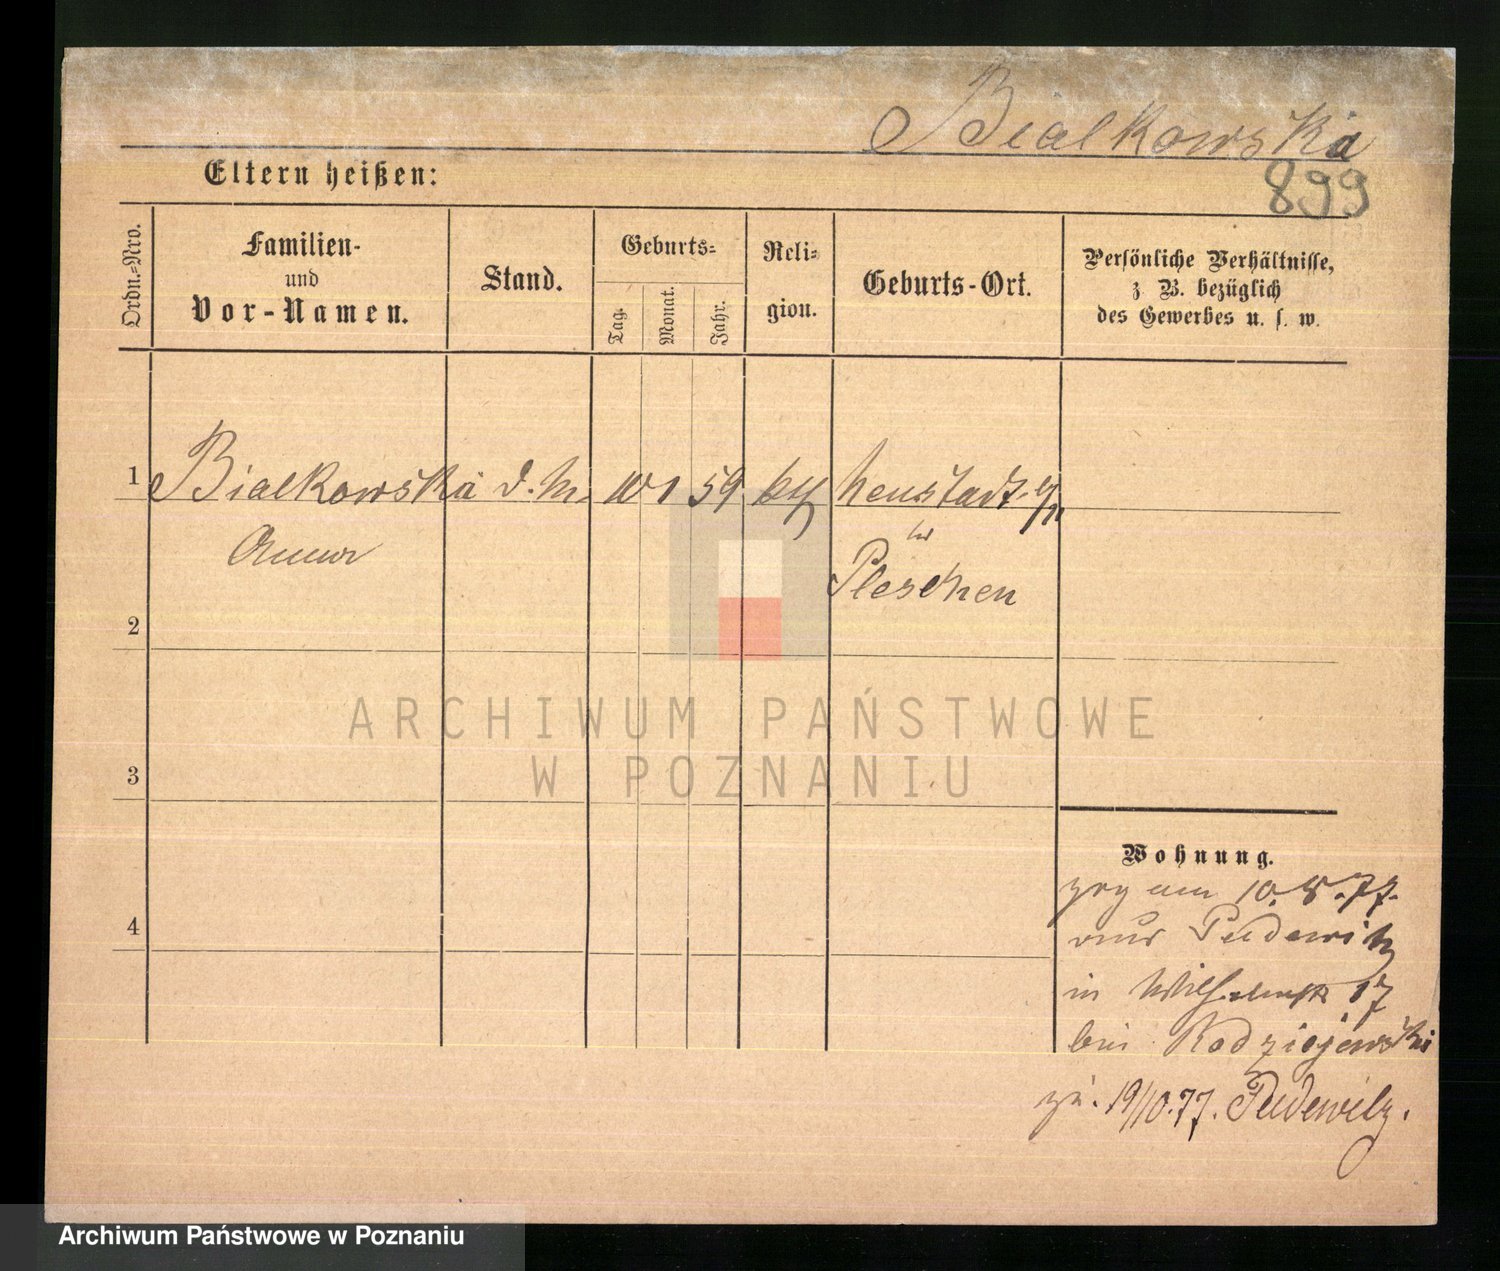 Bialkowska
Eltern heißen:
899
Ordn.-Nro.
Familien-
und
Vor-Namen.
Stand.
Geburts-
Tag.
Monat.
Jahr.
Reli-
gion.
Geburts-Ort.
Persönliche Verhältnisse,
z B. bezüglich
des Gewerbes u. s. w.
1 Bialkowska d. M. 10 1 59 kth Neustadt a/W
Anna
in
Pleschen
2
3
4
ARCHIWUM PAŃSTWOWE
W POZNANIU
Wohnung.
zog am 10.8.77.
aus Pudewitz
in Wilhelmstr 17
bei Radziejewski
19/10.77. Pudewitz.
Archiwum Państwowe w Poznaniu